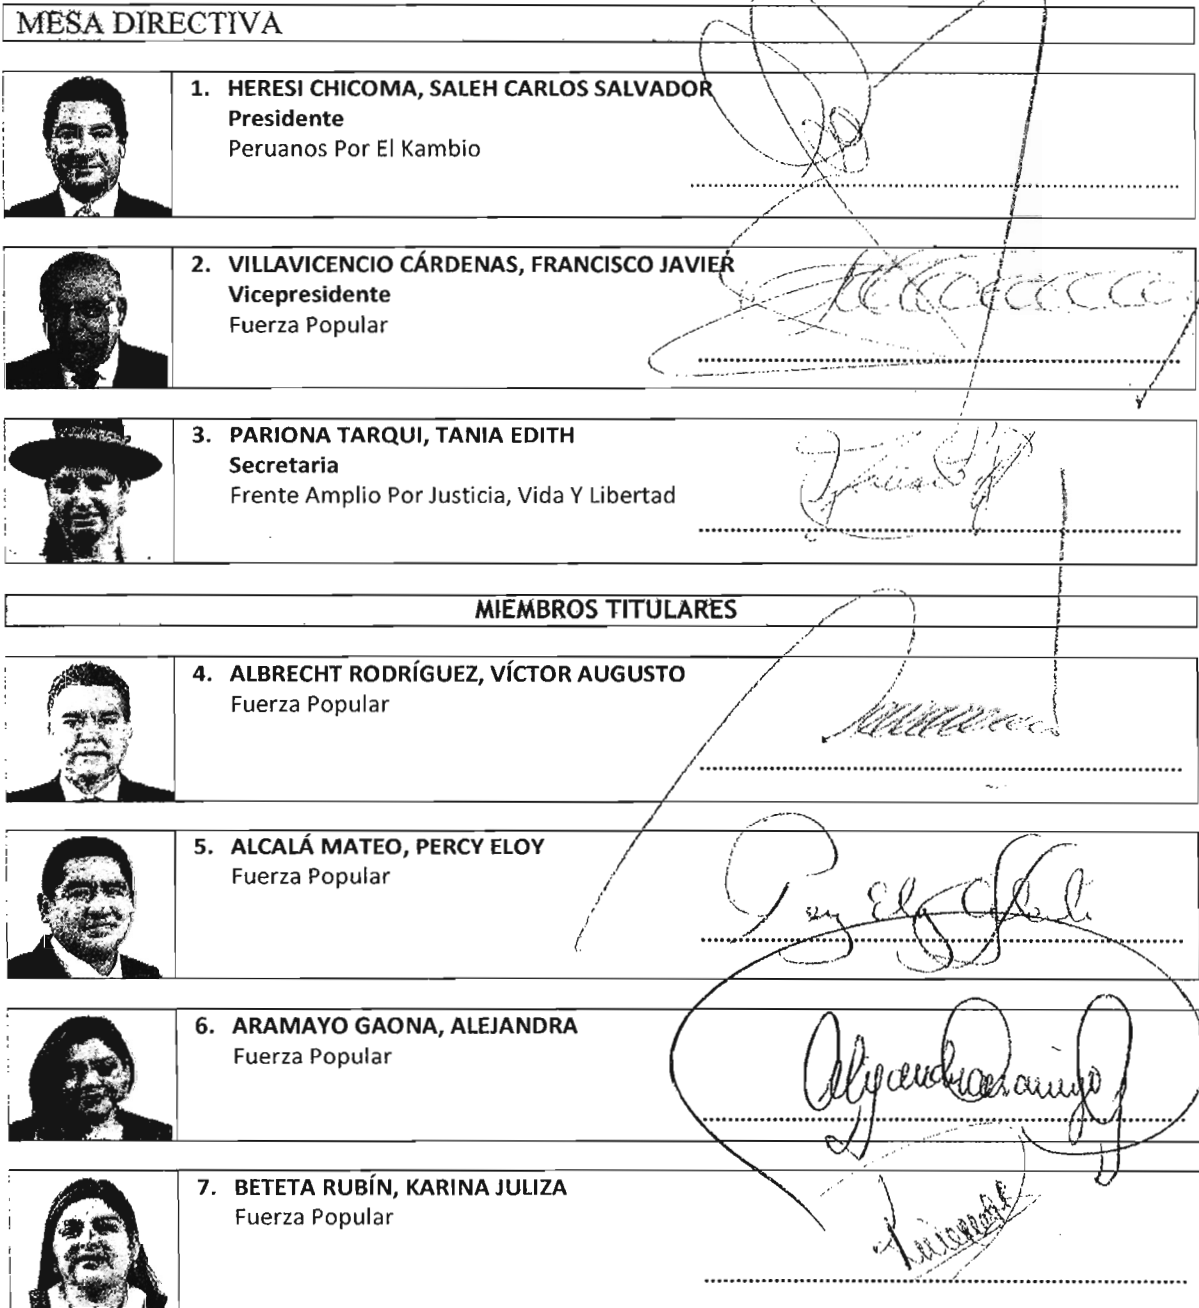 MESA DIRECTIVA
1. HERESI CHICOMA, SALEH CARLOS SALVADOR
Presidente
Peruanos Por El Kambio
2. VILLAVICENCIO CÁRDENAS, FRANCISCO JAVIER
Vicepresidente
Fuerza Popular
3. PARIONA TARQUI, TANIA EDITH
Secretaria
Frente Amplio Por Justicia, Vida Y Libertad
MIEMBROS TITULARES
4. ALBRECHT RODRÍGUEZ, VÍCTOR AUGUSTO
Fuerza Popular
5. ALCALÁ MATEO, PERCY ELOY
Fuerza Popular
6. ARAMAYO GAONA, ALEJANDRA
Fuerza Popular
7. BETETA RUBÍN, KARINA JULIZA
Fuerza Popular